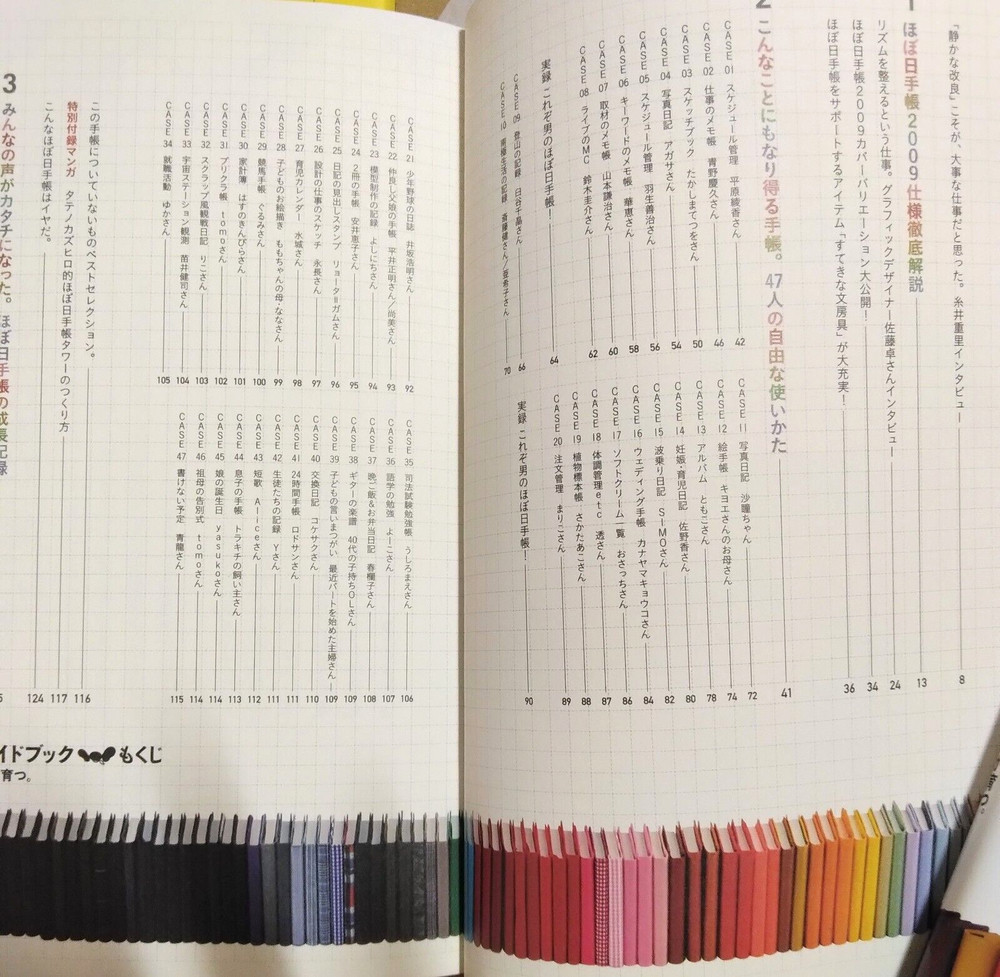 「静かな改良」こそが、大事な仕事だと思った。糸井重里インタビュー 8
1 ほぼ日手帳2009仕様徹底解説 13
リズムを整えるという仕事。グラフィックデザイナー佐藤卓さんインタビュー 24
ほぼ日手帳2009カバーバリエーション大公開! 34
ほぼ日手帳をサポートするアイテム「すてきな文房具」が大充実! 36
2 こんなことにもなり得る手帳。47人の自由な使いかた 41
CASE 01 スケジュール管理 平原綾香さん 42
CASE 02 仕事のメモ帳 青野慶久さん 46
CASE 03 スケッチブック たかしまてつをさん 50
CASE 04 写真日記 アガサさん 54
CASE 05 スケジュール管理 羽生善治さん 56
CASE 06 キーワードのメモ帳 華恵さん 58
CASE 07 取材のメモ帳 山本謙治さん 60
CASE 08 ライブのMC 鈴木圭介さん 62
実録 これぞ男のほぼ日手帳! 64
CASE 09 登山の記録 臼谷千晶さん 66
CASE 10 南極生活の記録 斎藤健さん/亜希子さん 70
CASE 11 写真日記 沙曈ちゃん 72
CASE 12 絵手帳 キヨエさんのお母さん 74
CASE 13 アルバム ともこさん 78
CASE 14 妊娠・育児日記 佐野香さん 80
CASE 15 波乗り日記 SIMOさん 82
CASE 16 ウェディング手帳 カナヤマキョウコさん 84
CASE 17 ソフトクリーム一覧 おさっちさん 86
CASE 18 体調管理etc 透さん 87
CASE 19 植物標本帳 さかたあこさん 88
CASE 20 注文管理 まりこさん 89
実録 これぞ男のほぼ日手帳! 90
CASE 21 少年野球の日誌 井坂浩明さん 92
CASE 22 仲良し父娘の手帳 平井正明さん/尚美さん 93
CASE 23 模型制作の記録 よしにちさん 94
CASE 24 2冊の手帳 安井恵子さん 95
CASE 25 日記の見出しスタンプ リョータ=ガムさん 96
CASE 26 設計の仕事のスケッチ 永長さん 97
CASE 27 育児カレンダー 水城さん 98
CASE 28 子どものお絵描き ももちゃんの母・ななさん 99
CASE 29 競馬手帳 ぐるみさん 100
CASE 30 家計簿 はすのきんぴらさん 101
CASE 31 プリクラ帳 tomoさん 102
CASE 32 スクラップ風観戦日記 りこさん 103
CASE 33 宇宙ステーション観測 苗井健司さん 104
CASE 34 就職活動 ゆかさん 105
CASE 35 司法試験勉強帳 うしろまえさん 106
CASE 36 語学の勉強 よーこさん 107
CASE 37 晩ご飯&お弁当日記 春欄子さん 108
CASE 38 ギターの楽譜 40代の子持ちOLさん 109
CASE 39 子どもの言いまつがい 最近パートを始めた主婦さん 109
CASE 40 交換日記 コケサクさん 110
CASE 41 24時間手帳 ロドサンさん 111
CASE 42 生徒たちの記録 Yさん 111
CASE 43 短歌 Aliceさん 112
CASE 44 息子の手帳 トラキチの飼い主さん 113
CASE 45 娘の誕生日 yasukoさん 114
CASE 46 祖母の告別式 tomoさん 114
CASE 47 書けない予定 青龍さん 115
この手帳についていないものベストセレクション。 116
特別付録マンガ タテノカズヒロ的ほぼ日手帳タワーのつくり方 117
こんなほぼ日手帳はイヤだ。 124
3 みんなの声がカタチになった。ほぼ日手帳の成長記録
イドブック もくじ
育つ。